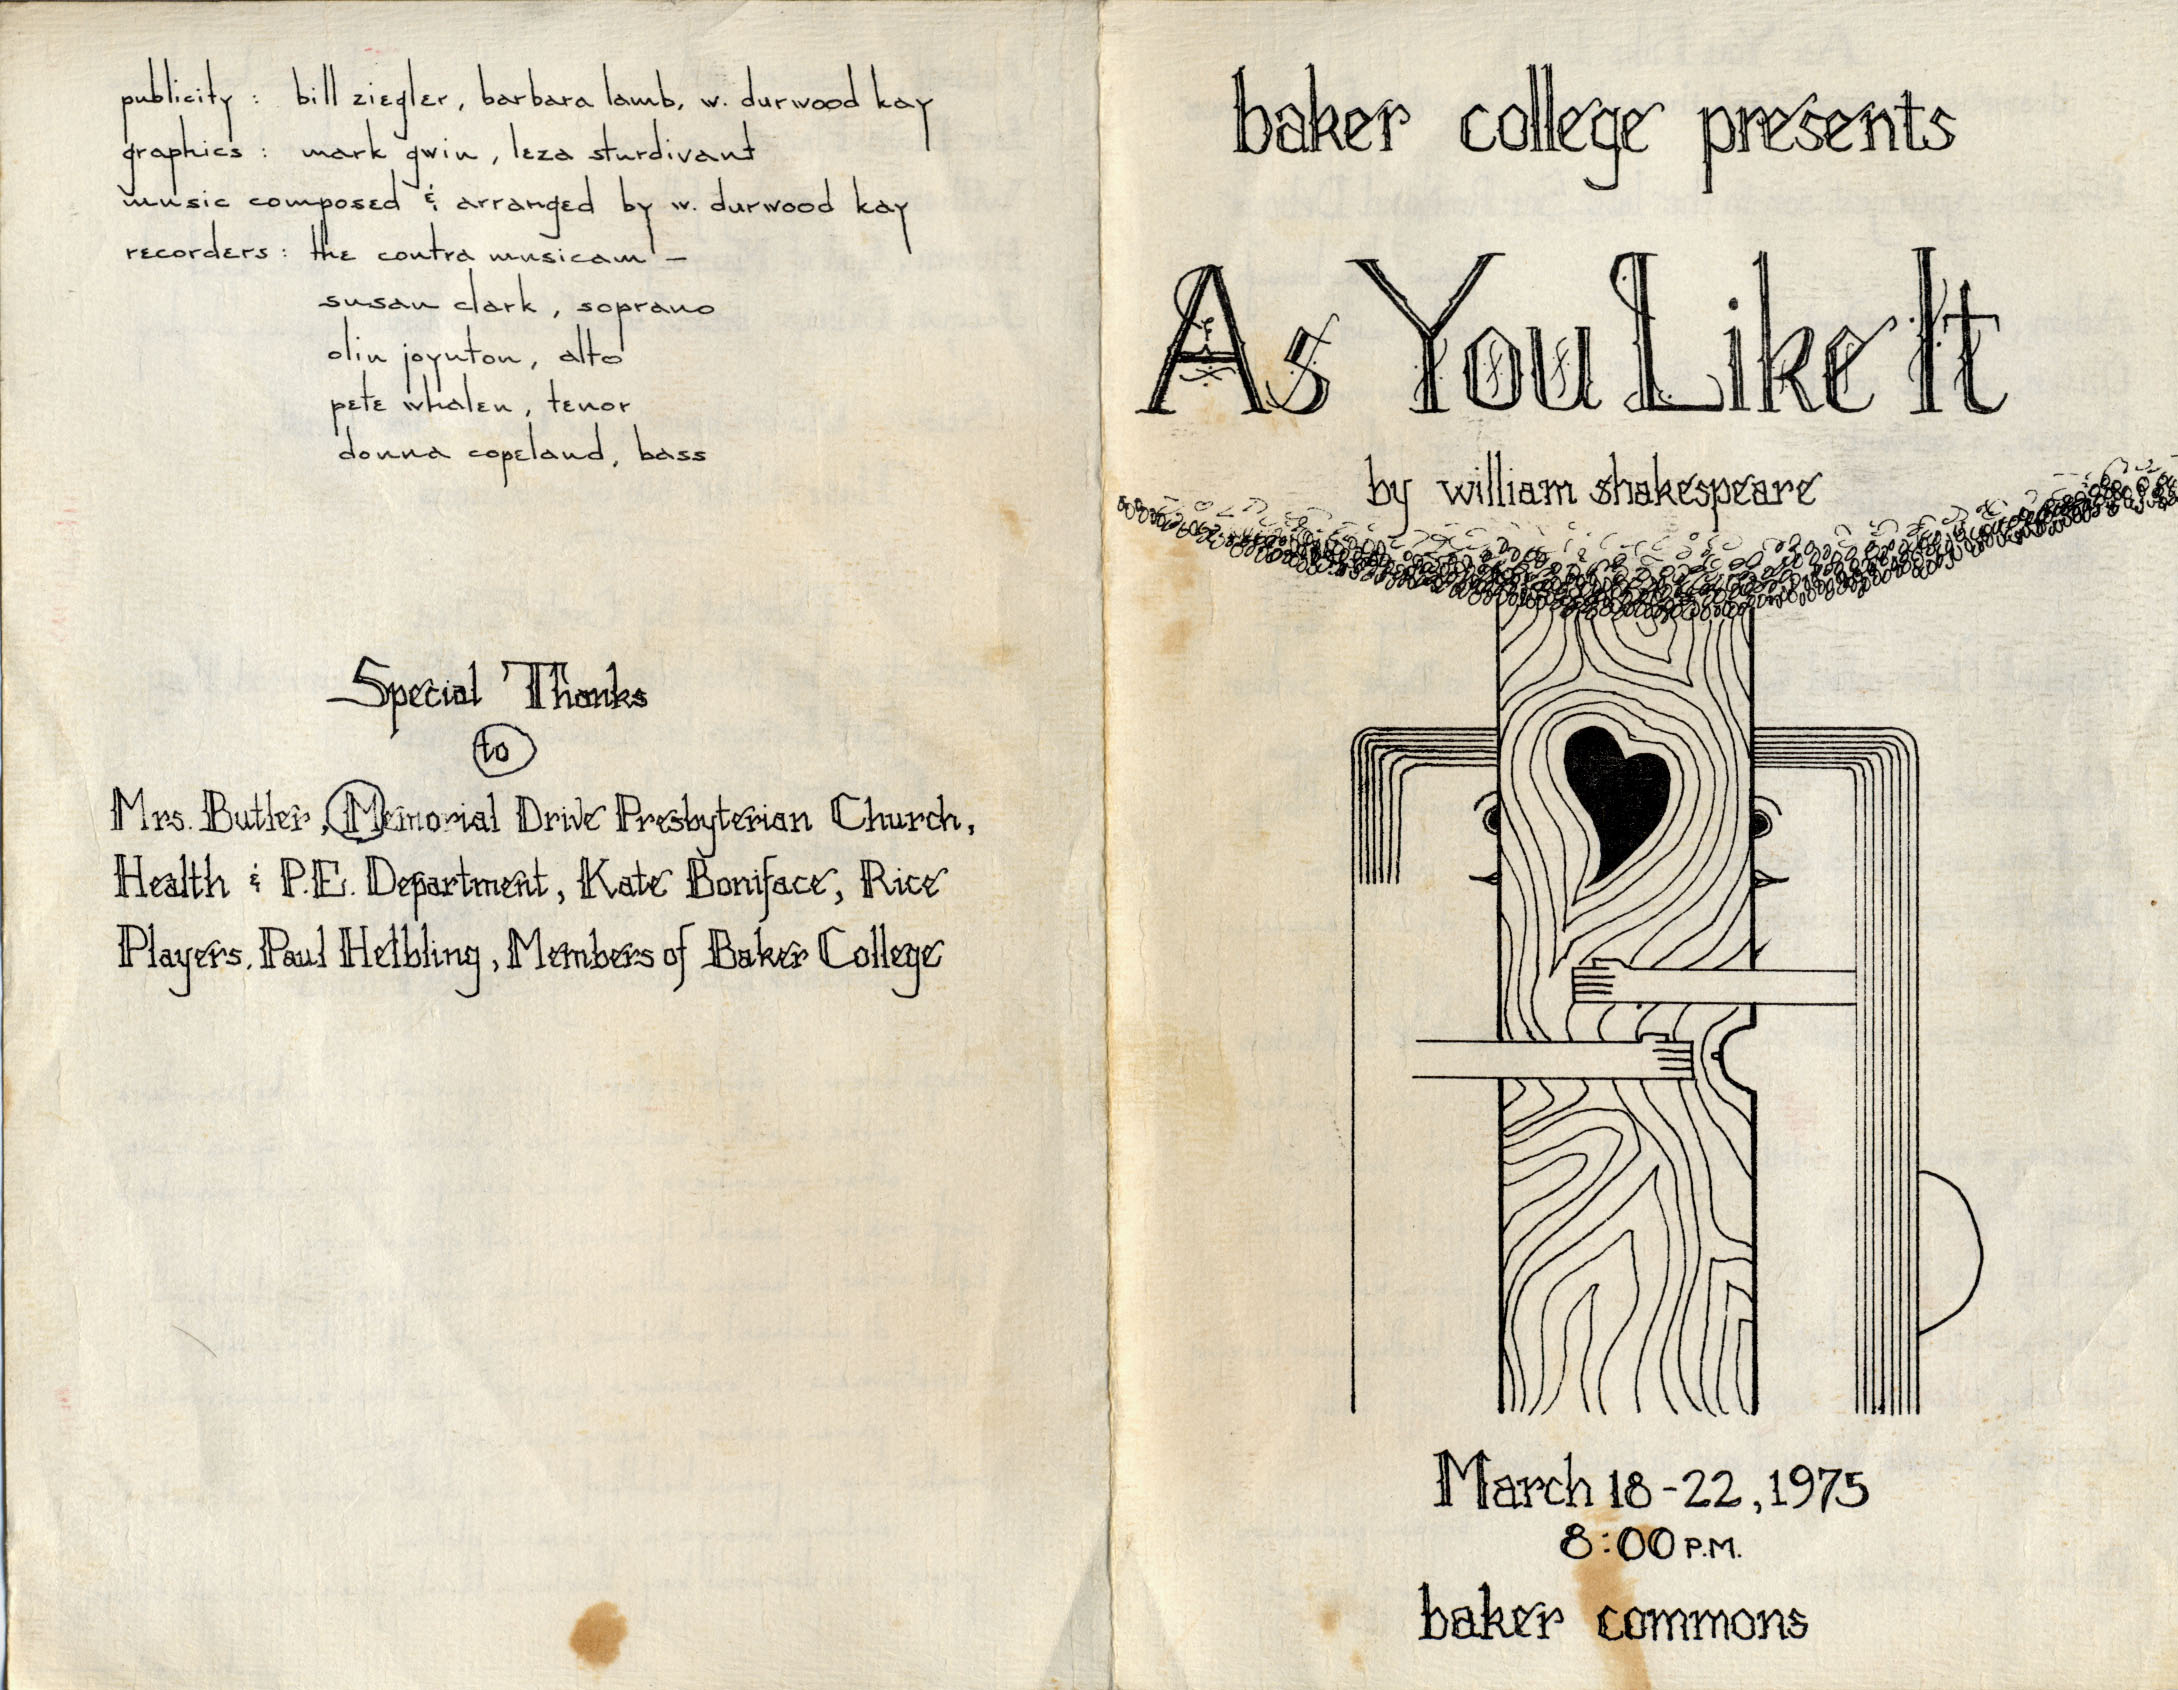 publicity : bill ziegler, barbara lamb, w. durwood kay
graphics : mark gwin, leza sturdivant
music composed & arranged by w. durwood kay
recorders : the contra musicam –
susan clark, soprano
olin joynton, alto
pete whalen, tenor
donna copeland, bass
Special Thanks
to
Mrs. Butler, Memorial Drive Presbyterian Church,
Health & P.E. Department, Kate Boniface, Rice
Players, Paul Helbling, Members of Baker College
baker college presents
As You Like It
by william shakespeare
March 18-22, 1975
8:00 P.M.
baker commons